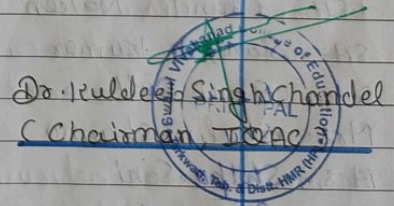 Dr. Kuldeep Singh Chandel
( Chairman, IQAC )
Swami Vivekanand College of Education
Tarkwari, Teh. & Distt. HMR (HP)
PAL